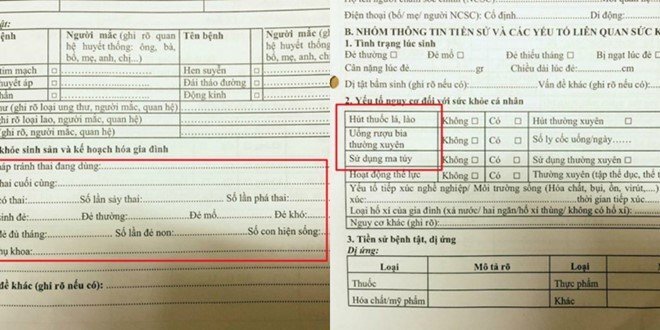 ật:
ệnh Người mắc (ghi rõ quan hệ huyết thống: ông, bà, bố, mẹ, anh, chị...) Tên bệnh Người mắc (ghi rõ quan hệ huyết thống: bố, mẹ, anh, chị
tim mạch □ Hen suyễn □
huyết áp □ Đái tháo đường □
thần □ Động kinh □
hư (ghi rõ loại ung thư, người mắc, quan hệ)
ghi rõ loại lao, người mắc, quan hệ)
(ghi rõ, người mắc, quan hệ)
khỏe sinh sản và kế hoạch hóa gia đình
háp tránh thai đang dùng:
hai cuối cùng:
có thai: Số lần sảy thai: Số lần phá thai:
sinh đẻ: Đẻ thường: Đẻ mổ: Đẻ khó:
đẻ đủ tháng: Số lần đẻ non: Số con hiện sống:
hụ khoa:
đề khác (ghi rõ nếu có):
Điện thoại (bố/ mẹ/ người NCSC): Cố định: Di động:
B. NHÓM THÔNG TIN TIỀN SỬ VÀ CÁC YẾU TỐ LIÊN QUAN SỨC K
1. Tình trạng lúc sinh
Đẻ thường □ Đẻ mổ □ Đẻ thiếu tháng □ Bị ngạt lúc đẻ □
Cân nặng lúc đẻ: gr Chiều dài lúc đẻ: cm
Dị tật bẩm sinh (ghi rõ nếu có): Vấn đề khác (ghi rõ nếu có):
2. Yếu tố nguy cơ đối với sức khỏe cá nhân
Hút thuốc lá, lào Không □ Có □
Uống rượu bia thường xuyên Không □ Có □ Số ly cốc uống/ngày
Sử dụng ma túy Không □ Có □ Sử dụng thường xuyên □
Hoạt động thể lực Không □ Có □ Thường xuyên (tập thể dục, thể t
Yếu tố tiếp xúc nghề nghiệp/ Môi trường sống (Hóa chất, bụi, ồn, virút,...)
xúc: thời gian tiếp xúc
Loại hố xí của gia đình (xả nước/ hai ngăn/hố xí thùng/ không có hố xí):
Nguy cơ khác (ghi rõ):
3. Tiền sử bệnh tật, dị ứng
Dị ứng:
Loại Mô tả rõ Loại
Thuốc Thực phẩm
Hóa chất/mỹ phẩm Khác